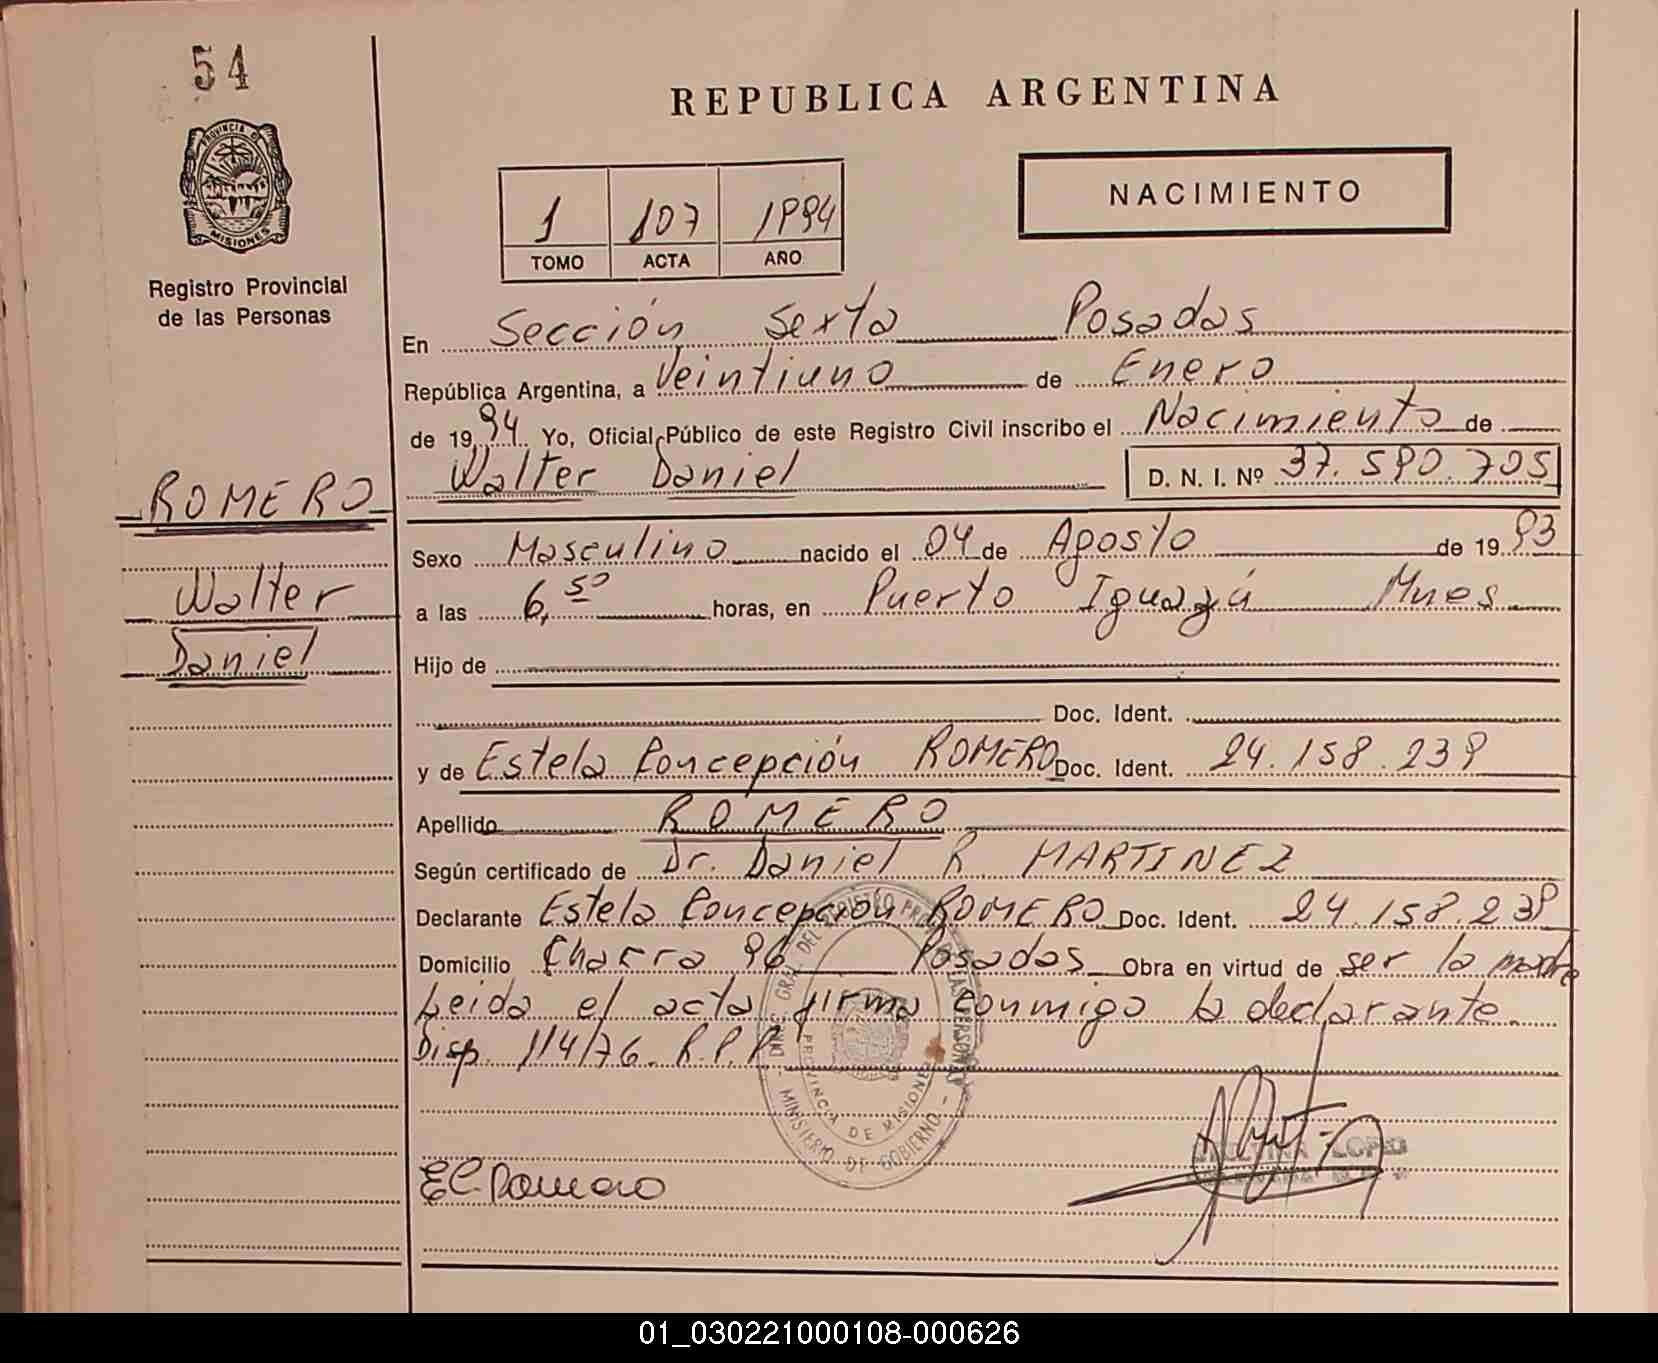 54
REPUBLICA ARGENTINA
PROVINCIA DE MISIONES
NACIMIENTO
1 107 1994
TOMO ACTA AÑO
Registro Provincial
de las Personas
En Sección Sexta Posadas
República Argentina, a Veintiuno de Enero
de 19 94 Yo, Oficial Público de este Registro Civil inscribo el Nacimiento de
Walter Daniel D. N. I. Nº 37.590.705
ROMERO
Walter
Daniel
Sexo Masculino nacido el 04 de Agosto de 19 93
a las 6,50 horas, en Puerto Iguazú Mnes
Hijo de
Doc. Ident.
y de Estela Concepción ROMERO Doc. Ident. 24.158.239
Apellido ROMERO
Según certificado de Dr. Daniel R. MARTINEZ
Declarante Estela Concepción ROMERO Doc. Ident. 24.158.239
Domicilio Chacra 96 Posadas Obra en virtud de ser la madre
Leida el acta firma conmigo la declarante.
Disp. 114/76. R.P.P.
DIREC. GRAL. DEL REGISTRO PROV. DE LAS PERSONAS
PROVINCIA DE MISIONES
MINISTERIO DE GOBIERNO
E.C. Romero
LOPEZ
01_030221000108-000626